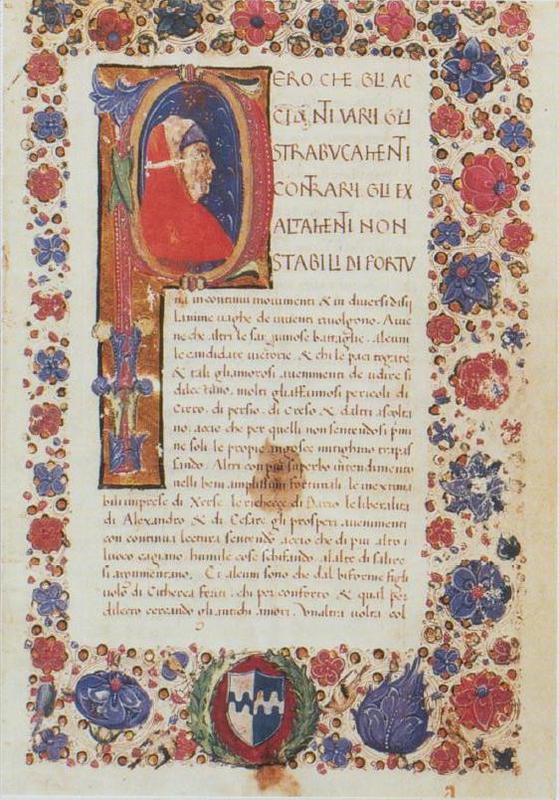 PERO CHE GLI AC
CIDENTI VARII GLI
STRABUCAMENTI
CONTRARII GLI EX
ALTAMENTI NON
STABILI DI FORTU
na in continui movimenti & in diversi disij
lanime vaghe de viventi rivolgono. Avie
ne che altri le sanguinose battaglie. alcuni
le candidate victorie. & chi le paci togate
& tali gliamorosi avenimenti de udire si
dilectano. molti gli affannosi pericoli di
Cirro. di persio. di Creso & daltri ascolta
no. accio che per quelli non sentendosi primi
ne soli le proprie angosce mitighino trapas
sando. Altri con piu superbo intendimento
nelli beni amplissimi fortunali le inextima
bili imprese di Xerse. le richecce di Dario. le liberalita
di Alexandro & di Cesare gli prosperi avenimenti
con continua lectura sentendo accio che di piu alto i
luoco cagiano. humile cose schifando. alalte di salire
si argumentano. Et alcuni sono che dal biforme figli
uolo di Citherea feriti. chi per conforto & qual per
dilecto cercando gli antichi amori. Unaltra volta col